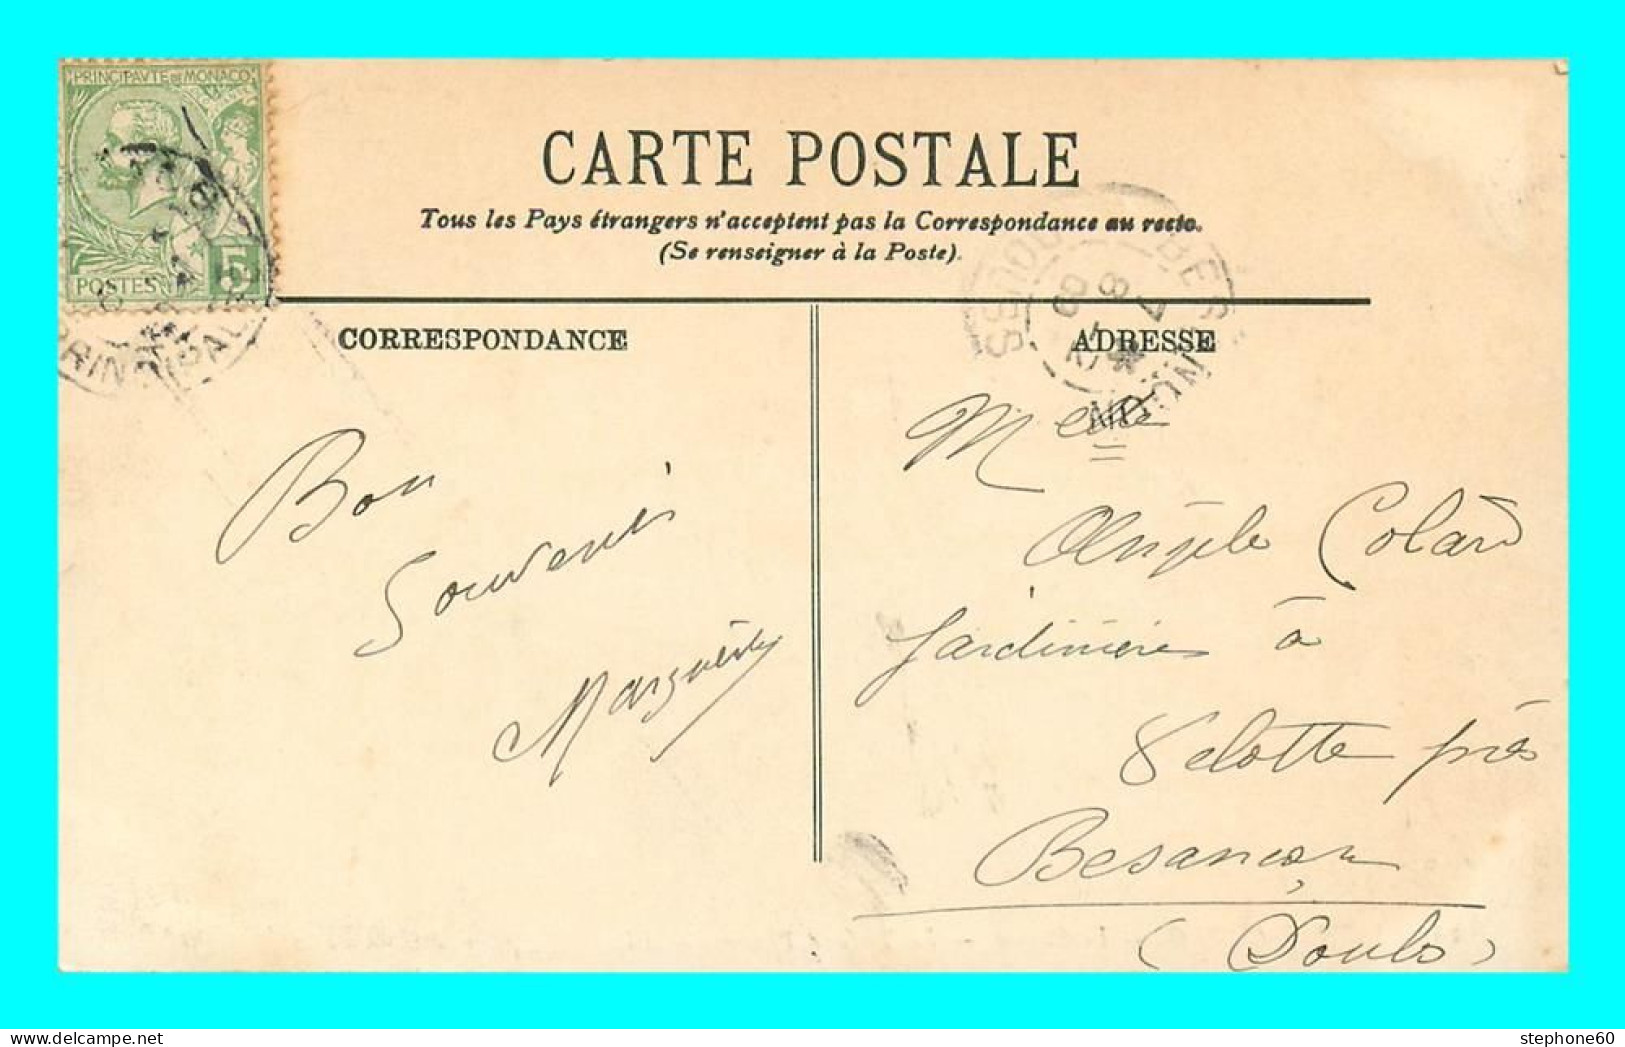 PRINCIPAVTE DE MONACO
POSTES 5 c
CARTE POSTALE
Tous les Pays étrangers n'acceptent pas la Correspondance au recto.
(Se renseigner à la Poste).
CORRESPONDANCE
ADRESSE
Bon
Souvenir
Marguerite
Melle
Angèle Colard
Jardinière à
Velotte près
Besançon
(Doubs)
stephone60